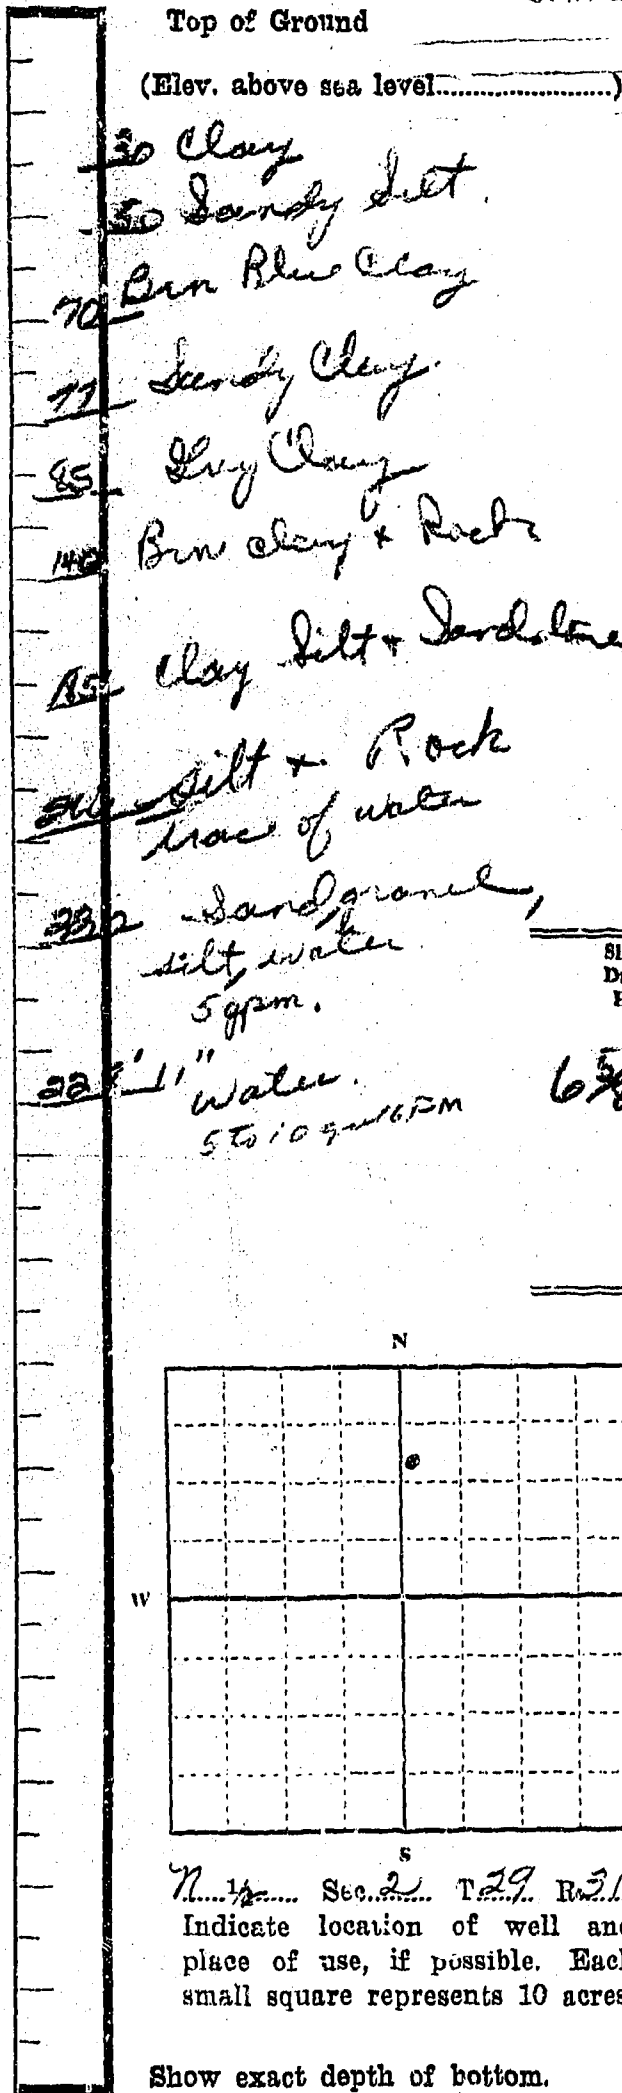 Top of Ground
(Elev. above sea level........................)
30 Clay
50 Sandy Silt.
70 Brn Blue Clay
77 Sandy Clay.
85 Gry Clay
140 Brn clay & Rock
185 Clay Silt & Sandstone
Silt & Rock
trac of water
Sand, gravel,
silt, water
5 gpm.
11" water.
5 to 10
6 5/8
N
W
S
N...½...... Sec. 2 T. 29 R. 31
Indicate location of well and
place of use, if possible. Each
small square represents 10 acres
Show exact depth of bottom.